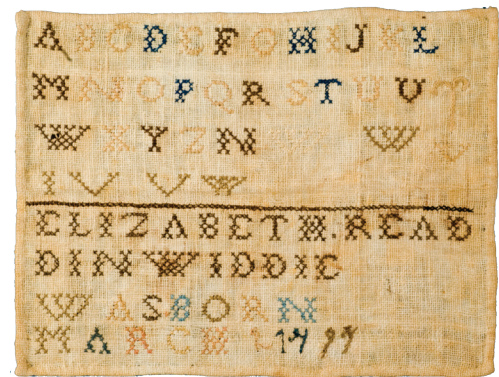 A B C D E F G H I J K L
M N O P Q R S T U V
W X Y Z N W
I V V W
ELIZABETH.READ
DINWIDDIE
WAS BORN
MARCH 1799